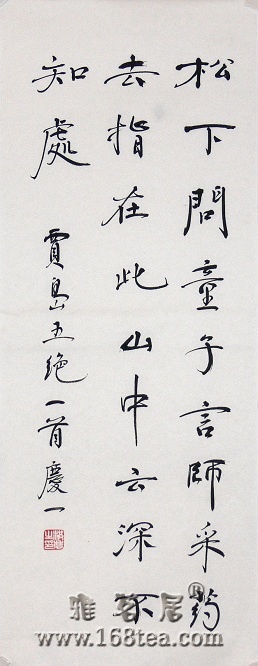 松下問童子言師采药
去指在此山中云深不
知處
賈島五绝一首慶一
雅茗居®
www.168tea.com